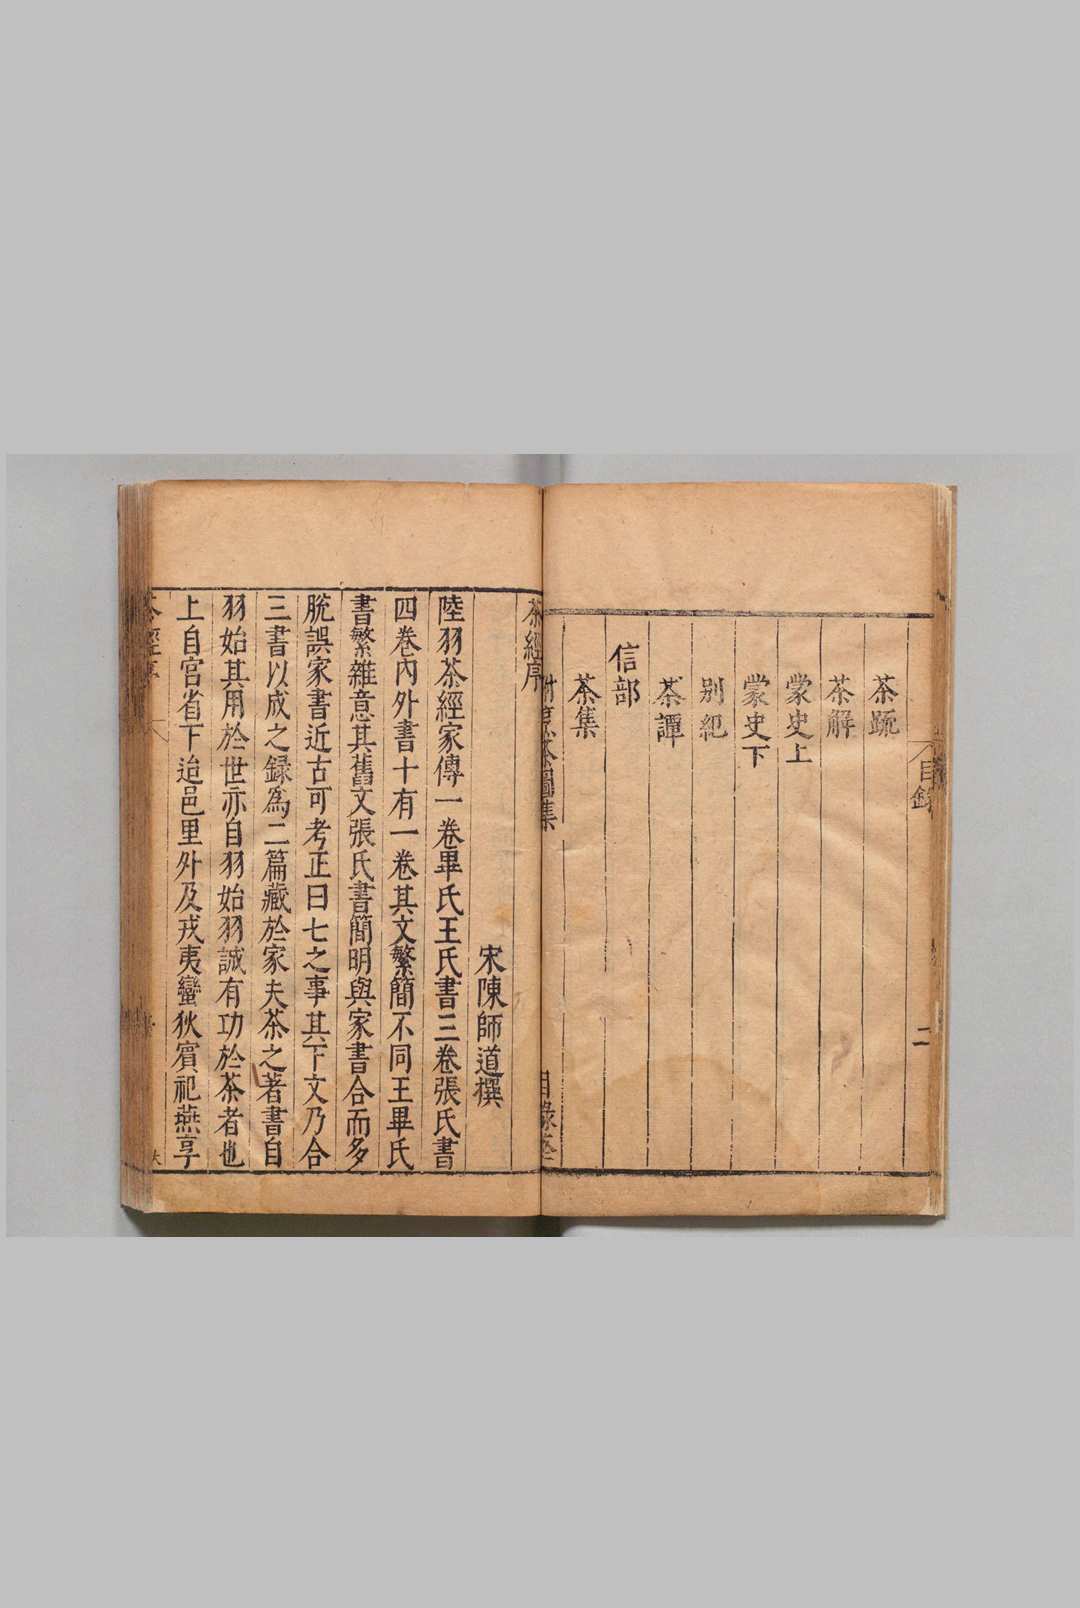 目錄
二
茶疏
茶解
蒙史上
蒙史下
別紀
茶譚
信部
茶集
附烹茶圖集
目錄畢
茶經序
宋陳師道撰
陸羽茶經家傳一卷畢氏王氏書三卷張氏書
四卷內外書十有一卷其文繁簡不同王畢氏
書繁雜意其舊文張氏書簡明與家書合而多
脫誤家書近古可考正曰七之事其下文乃合
三書以成之錄為二篇藏於家夫茶之著書自
羽始其用於世亦自羽始羽誠有功於茶者也
上自宮省下迨邑里外及戎夷蠻狄賓祀燕享
茶經序